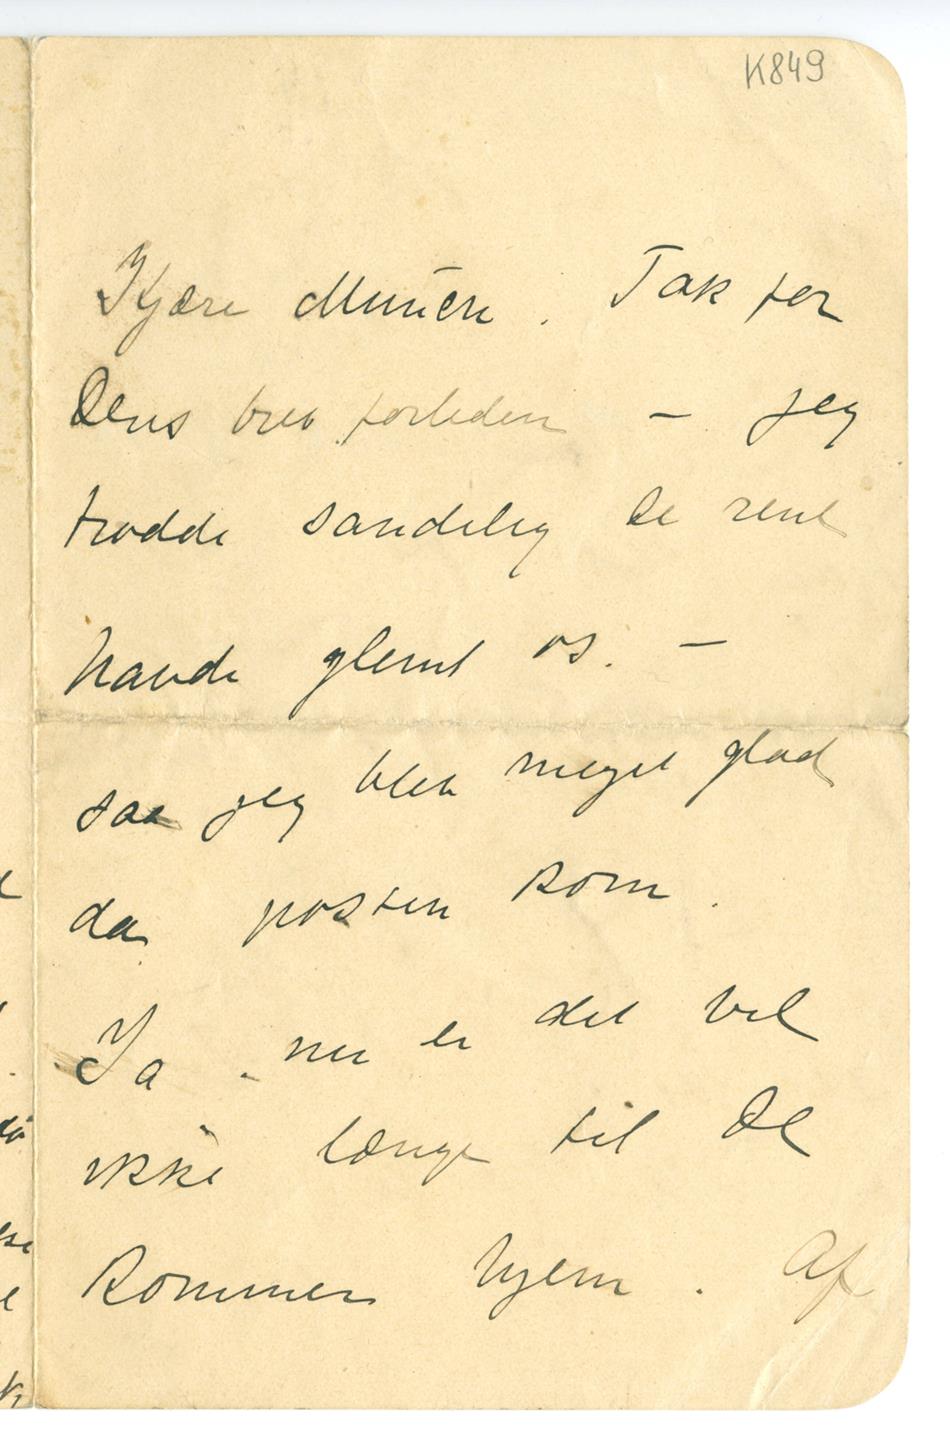 K849
Kjære Munch. Tak for
Deres brev forleden – jeg
trodde sandelig De rent
havde glemt os. –
saa jeg blev meget glad
da posten kom.
Ja, nu er det vel
ikke længe til De
kommer hjem. Af